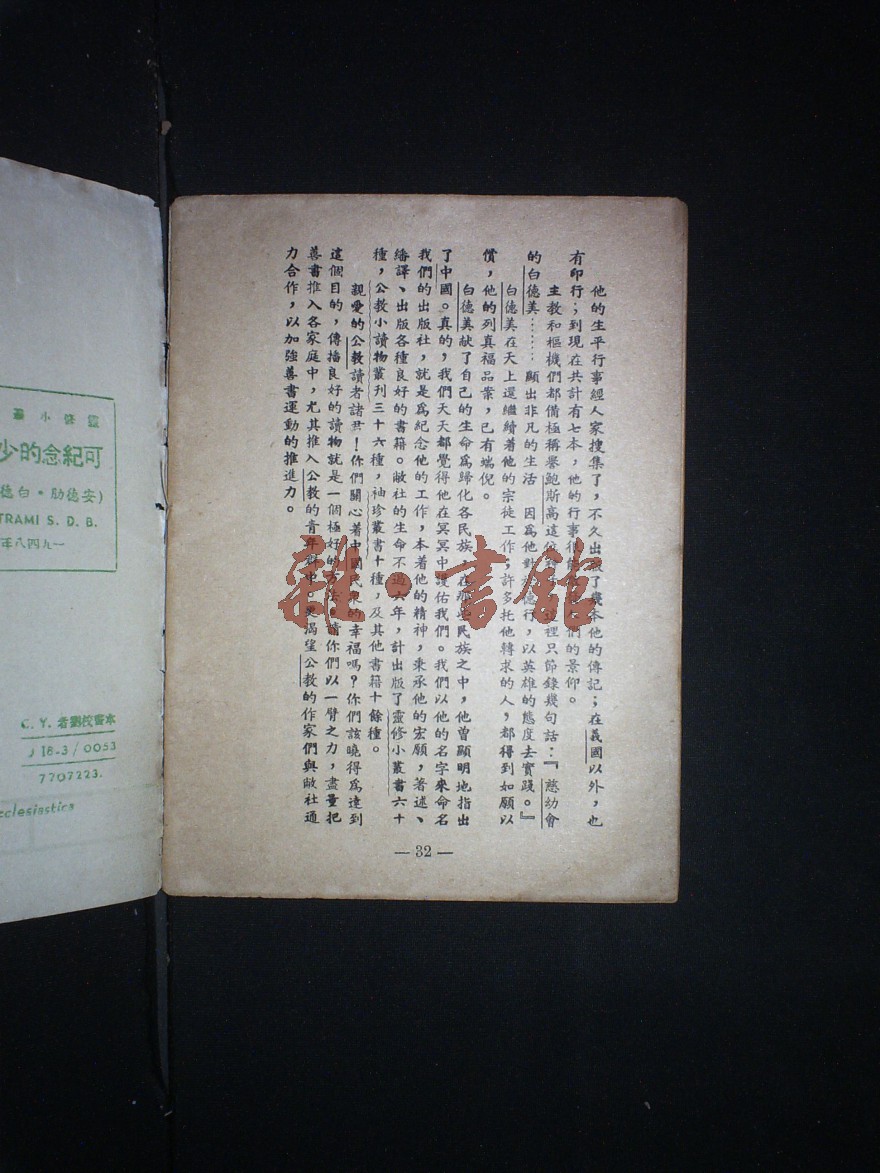 他的生平行事經人家搜集了，不久出了幾本他的傳記；在義國以外，也
有印行；到現在共計有七本，他的行事很們的景仰。
主教和樞機們都備極稱譽鮑斯高這位裡只節錄幾句話：『慈幼會
的白德美……顯出非凡的生活　因爲他對於德行，以英雄的態度去實踐。』
白德美在天上還繼續着他的宗徒工作；許多托他轉求的人，都得到如願以
償，他的列眞福品案，已有端倪。
白德美献了自己的生命爲歸化各民族，在那些民族之中，他曾顯明地指出
了中國。眞的，我們天天都覺得他在冥冥中護佑我們。我們以他的名字來命名
我們的出版社，就是爲紀念他的工作，本着他的精神，秉承他的宏願，著述、
繙譯、出版各種良好的書籍。敝社的生命不過六年，計出版了靈修小叢書六十
種，公教小讀物叢刊三十六種，袖珍叢書十種，及其他書籍十餘種。
親愛的公教讀者諸君！你們關心著中國民衆的幸福嗎？你們該曉得爲達到
這個目的，傳播良好的讀物就是一個極好的方法。請你們以一臂之力，盡量把
善書推入各家庭中，尤其推入公教的青年群中。更渴望公教的作家們與敝社通
力合作，以加強善書運動的推進力。
— 32 —
雜·書館
靈修小叢
可紀念的少
(安德肋·白德
TRAMI S. D. B.
一九四八年
本書校對者 C. Y.
J 18-3/0053
7707223.
cclesiastica